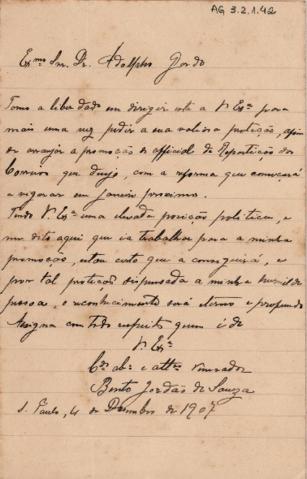 AG 3.2.1.42
Exmo Snr. Dr. Adolpho Gordo
Tomo a liberdade em dirigir esta a V. Exª para
mais uma vez pedir a sua valiosa proteção, afim
de arranjar a promoção de official da Repartição dos
Correios que desejo, com a reforma que começará
a vigorar em Janeiro proximo.
Tendo V. Exª uma elevada posição politica, e
me dito aqui que ia trabalhar para a minha
promoção, estou certo que a conseguirá, e
por tal proteção dispensada a minha humilde
pessoa, o reconhecimento será eterno e profundo
Assigna com todo respeito quem é de
V. Exª
Cº abº e attº venerador
Bento Jordão de Souza
S. Paulo, 4 de Dezembro de 1907